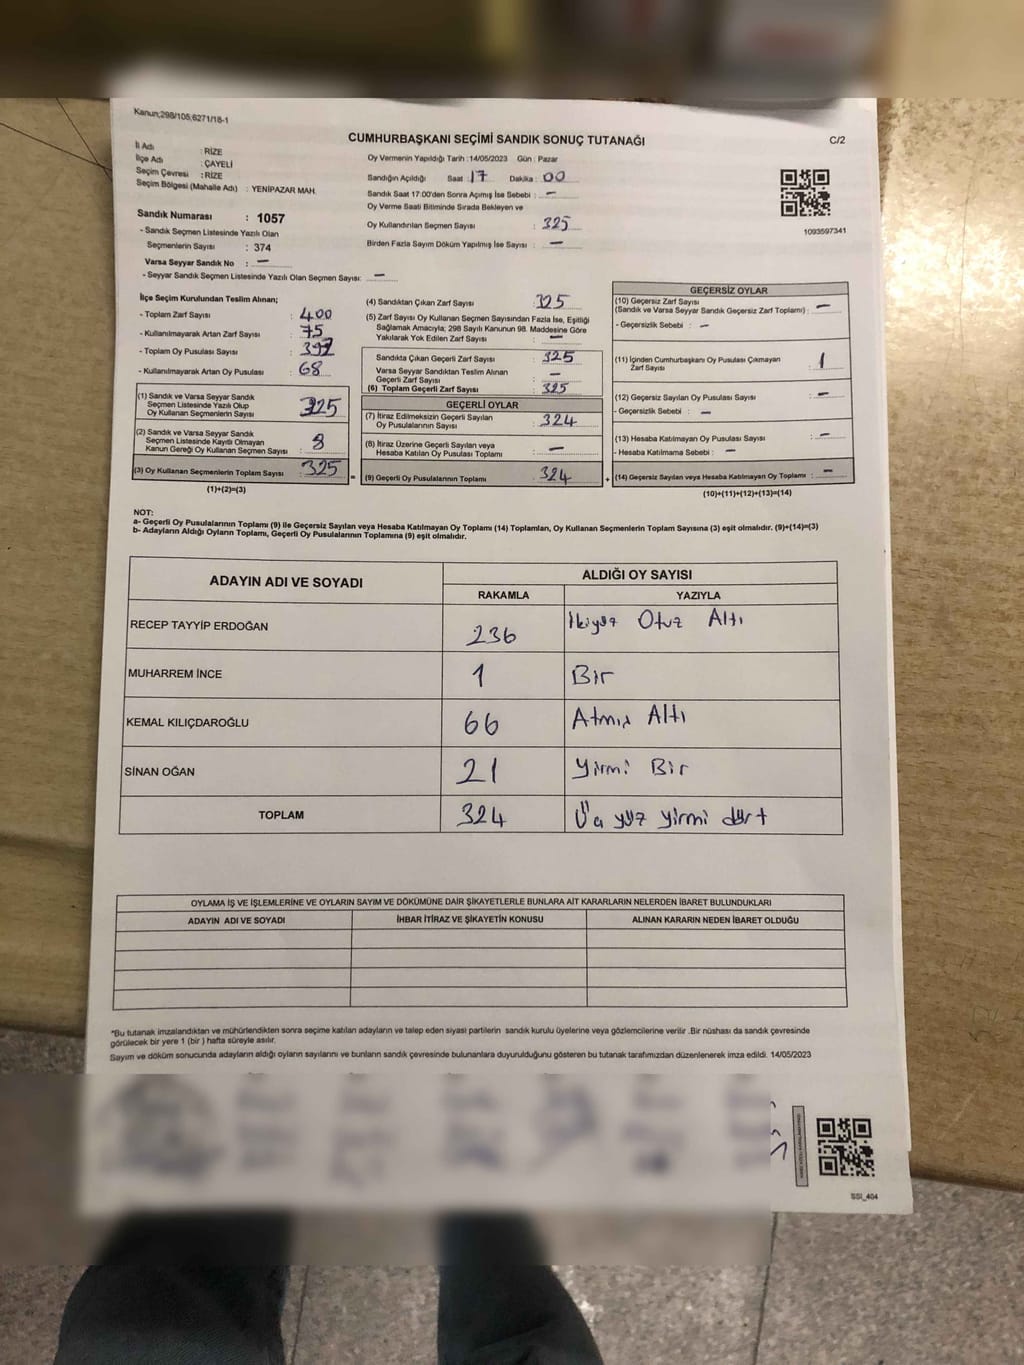 Kanun;298/105,6271/18-1
CUMHURBAŞKANI SEÇİMİ SANDIK SONUÇ TUTANAĞI
C/2
İl Adı : RİZE
İlçe Adı : ÇAYELİ
Seçim Çevresi : RİZE
Seçim Bölgesi (Mahalle Adı) : YENİPAZAR MAH.
Oy Vermenin Yapıldığı Tarih :14/05/2023 Gün : Pazar
Sandığın Açıldığı Saat : 17 Dakika : 00
Sandık Saat 17:00'den Sonra Açımış İse Sebebi : —
Oy Verme Saati Bitiminde Sırada Bekleyen ve
Oy Kullandırılan Seçmen Sayısı : 325
Birden Fazla Sayım Döküm Yapılmış İse Sayısı : —
1093597341
Sandık Numarası : 1057
- Sandık Seçmen Listesinde Yazılı Olan
Seçmenlerin Sayısı : 374
Varsa Seyyar Sandık No : —
- Seyyar Sandık Seçmen Listesinde Yazılı Olan Seçmen Sayısı: —
İlçe Seçim Kurulundan Teslim Alınan;
- Toplam Zarf Sayısı : 400
- Kullanılmayarak Artan Zarf Sayısı : 75
- Toplam Oy Pusulası Sayısı :
- Kullanılmayarak Artan Oy Pusulası : 68
(1) Sandık ve Varsa Seyyar Sandık
Seçmen Listesinde Yazılı Olup
Oy Kullanan Seçmenlerin Sayısı : 325
(2) Sandık ve Varsa Seyyar Sandık
Seçmen Listesinde Kayıtlı Olmayan
Kanun Gereği Oy Kullanan Seçmen Sayısı :
(3) Oy Kullanan Seçmenlerin Toplam Sayısı : 325
(1)+(2)=(3)
(4) Sandıktan Çıkan Zarf Sayısı : 325
(5) Zarf Sayısı Oy Kullanan Seçmen Sayısından Fazla İse, Eşitliği
Sağlamak Amacıyla; 298 Sayılı Kanunun 98. Maddesine Göre
Yakılarak Yok Edilen Zarf Sayısı : —
Sandıkta Çıkan Geçerli Zarf Sayısı : 325
Varsa Seyyar Sandıktan Teslim Alınan
Geçerli Zarf Sayısı : —
(6) Toplam Geçerli Zarf Sayısı : 325
GEÇERLİ OYLAR
(7) İtiraz Edilmeksizin Geçerli Sayılan
Oy Pusulalarının Sayısı : 324
(8) İtiraz Üzerine Geçerli Sayılan veya
Hesaba Katılan Oy Pusulası Toplamı : —
(9) Geçerli Oy Pusulalarının Toplamı : 324
GEÇERSİZ OYLAR
(10) Geçersiz Zarf Sayısı
(Sandık ve Varsa Seyyar Sandık Geçersiz Zarf Toplamı) : —
- Geçersizlik Sebebi : —
(11) İçinden Cumhurbaşkanı Oy Pusulası Çıkmayan
Zarf Sayısı : 1
(12) Geçersiz Sayılan Oy Pusulası Sayısı : —
- Geçersizlik Sebebi : —
(13) Hesaba Katılmayan Oy Pusulası Sayısı : —
- Hesaba Katılmama Sebebi : —
(14) Geçersiz Sayılan veya Hesaba Katılmayan Oy Toplamı : —
(10)+(11)+(12)+(13)=(14)
NOT:
a- Geçerli Oy Pusulalarının Toplamı (9) ile Geçersiz Sayılan veya Hesaba Katılmayan Oy Toplamı (14) Toplamları, Oy Kullanan Seçmenlerin Toplam Sayısına (3) eşit olmalıdır. (9)+(14)=(3)
b- Adayların Aldığı Oyların Toplamı, Geçerli Oy Pusulalarının Toplamına (9) eşit olmalıdır.
ADAYIN ADI VE SOYADI ALDIĞI OY SAYISI
RAKAMLA YAZIYLA
RECEP TAYYİP ERDOĞAN 236 İkiyüz Otuz Altı
MUHARREM İNCE 1 Bir
KEMAL KILIÇDAROĞLU 66 Atmış Altı
SİNAN OĞAN 21 Yirmi Bir
TOPLAM 324 Üç yüz yirmi dört
OYLAMA İŞ VE İŞLEMLERİNE VE OYLARIN SAYIM VE DÖKÜMÜNE DAİR ŞİKAYETLERLE BUNLARA AİT KARARLARIN NELERDEN İBARET BULUNDUKLARI
ADAYIN ADI VE SOYADI İHBAR İTİRAZ VE ŞİKAYETİN KONUSU ALINAN KARARIN NEDEN İBARET OLDUĞU
*Bu tutanak imzalandıktan ve mühürlendikten sonra seçime katılan adayların ve talep eden siyasi partilerin sandık kurulu üyelerine veya gözlemcilerine verilir .Bir nüshası da sandık çevresinde
görülecek bir yere 1 (bir ) hafta süreyle asılır.
Sayım ve döküm sonucunda adayların aldığı oyların sayılarını ve bunların sandık çevresinde bulunanlara duyurulduğunu gösteren bu tutanak tarafımızdan düzenlenerek imza edildi. 14/05/2023
SSI_404